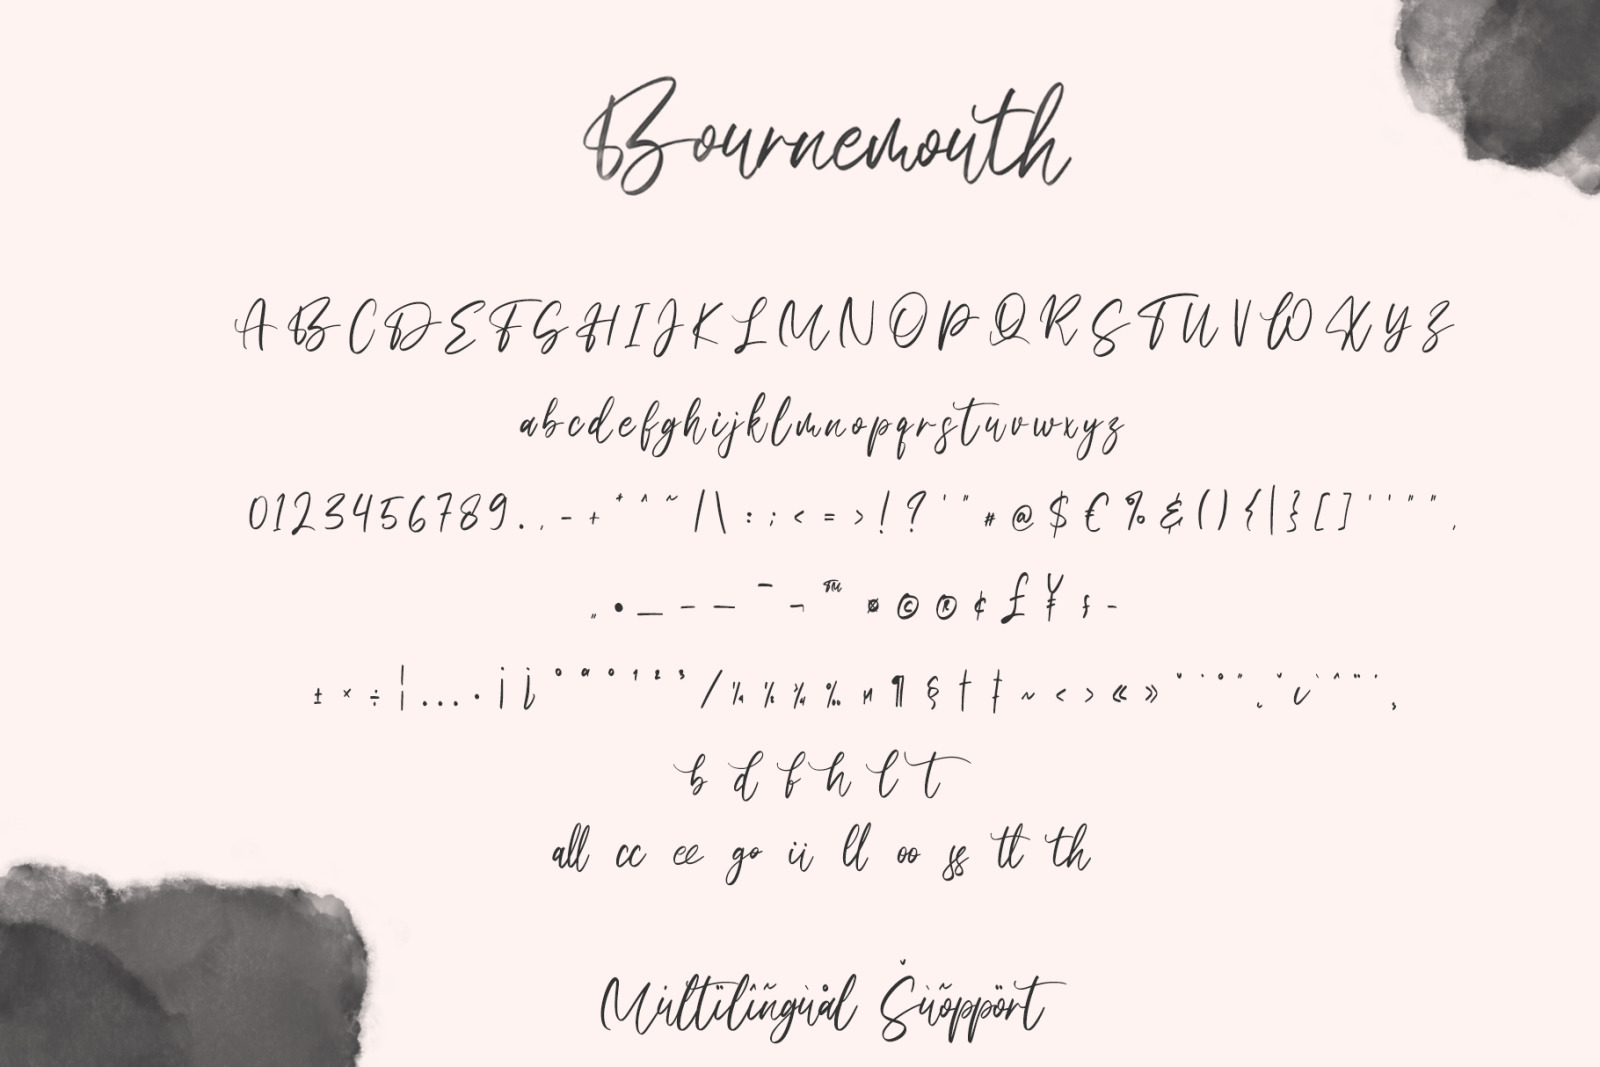 Bournemouth
A B C D E F G H I J K L M N O P Q R S T U V W X Y Z
a b c d e f g h i j k l m n o p q r s t u v w x y z
0 1 2 3 4 5 6 7 8 9 . , - + ⁺ ^ ~ / \ : ; < = > ! ? ' " # @ $ € % & ( ) { | } [ ] ‘ ’ “ ” ‚
„ • _ – — ¯ ¬ ™ ¤ © ® ¢ £ ¥ ƒ -
± × ÷ ¦ … · ¡ ¿ º ª º ¹ ² ³ ⁄ ¼ ½ ¾ ‰ ¶ § † ‡ ~ ‹ › « »
b d f h l t
all cc ee go ii ll oo ss tt th
Multïlîñgùål Šùõppört